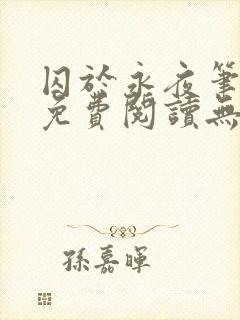 囚於永夜筆
免費閱讀無
孫嘉暉